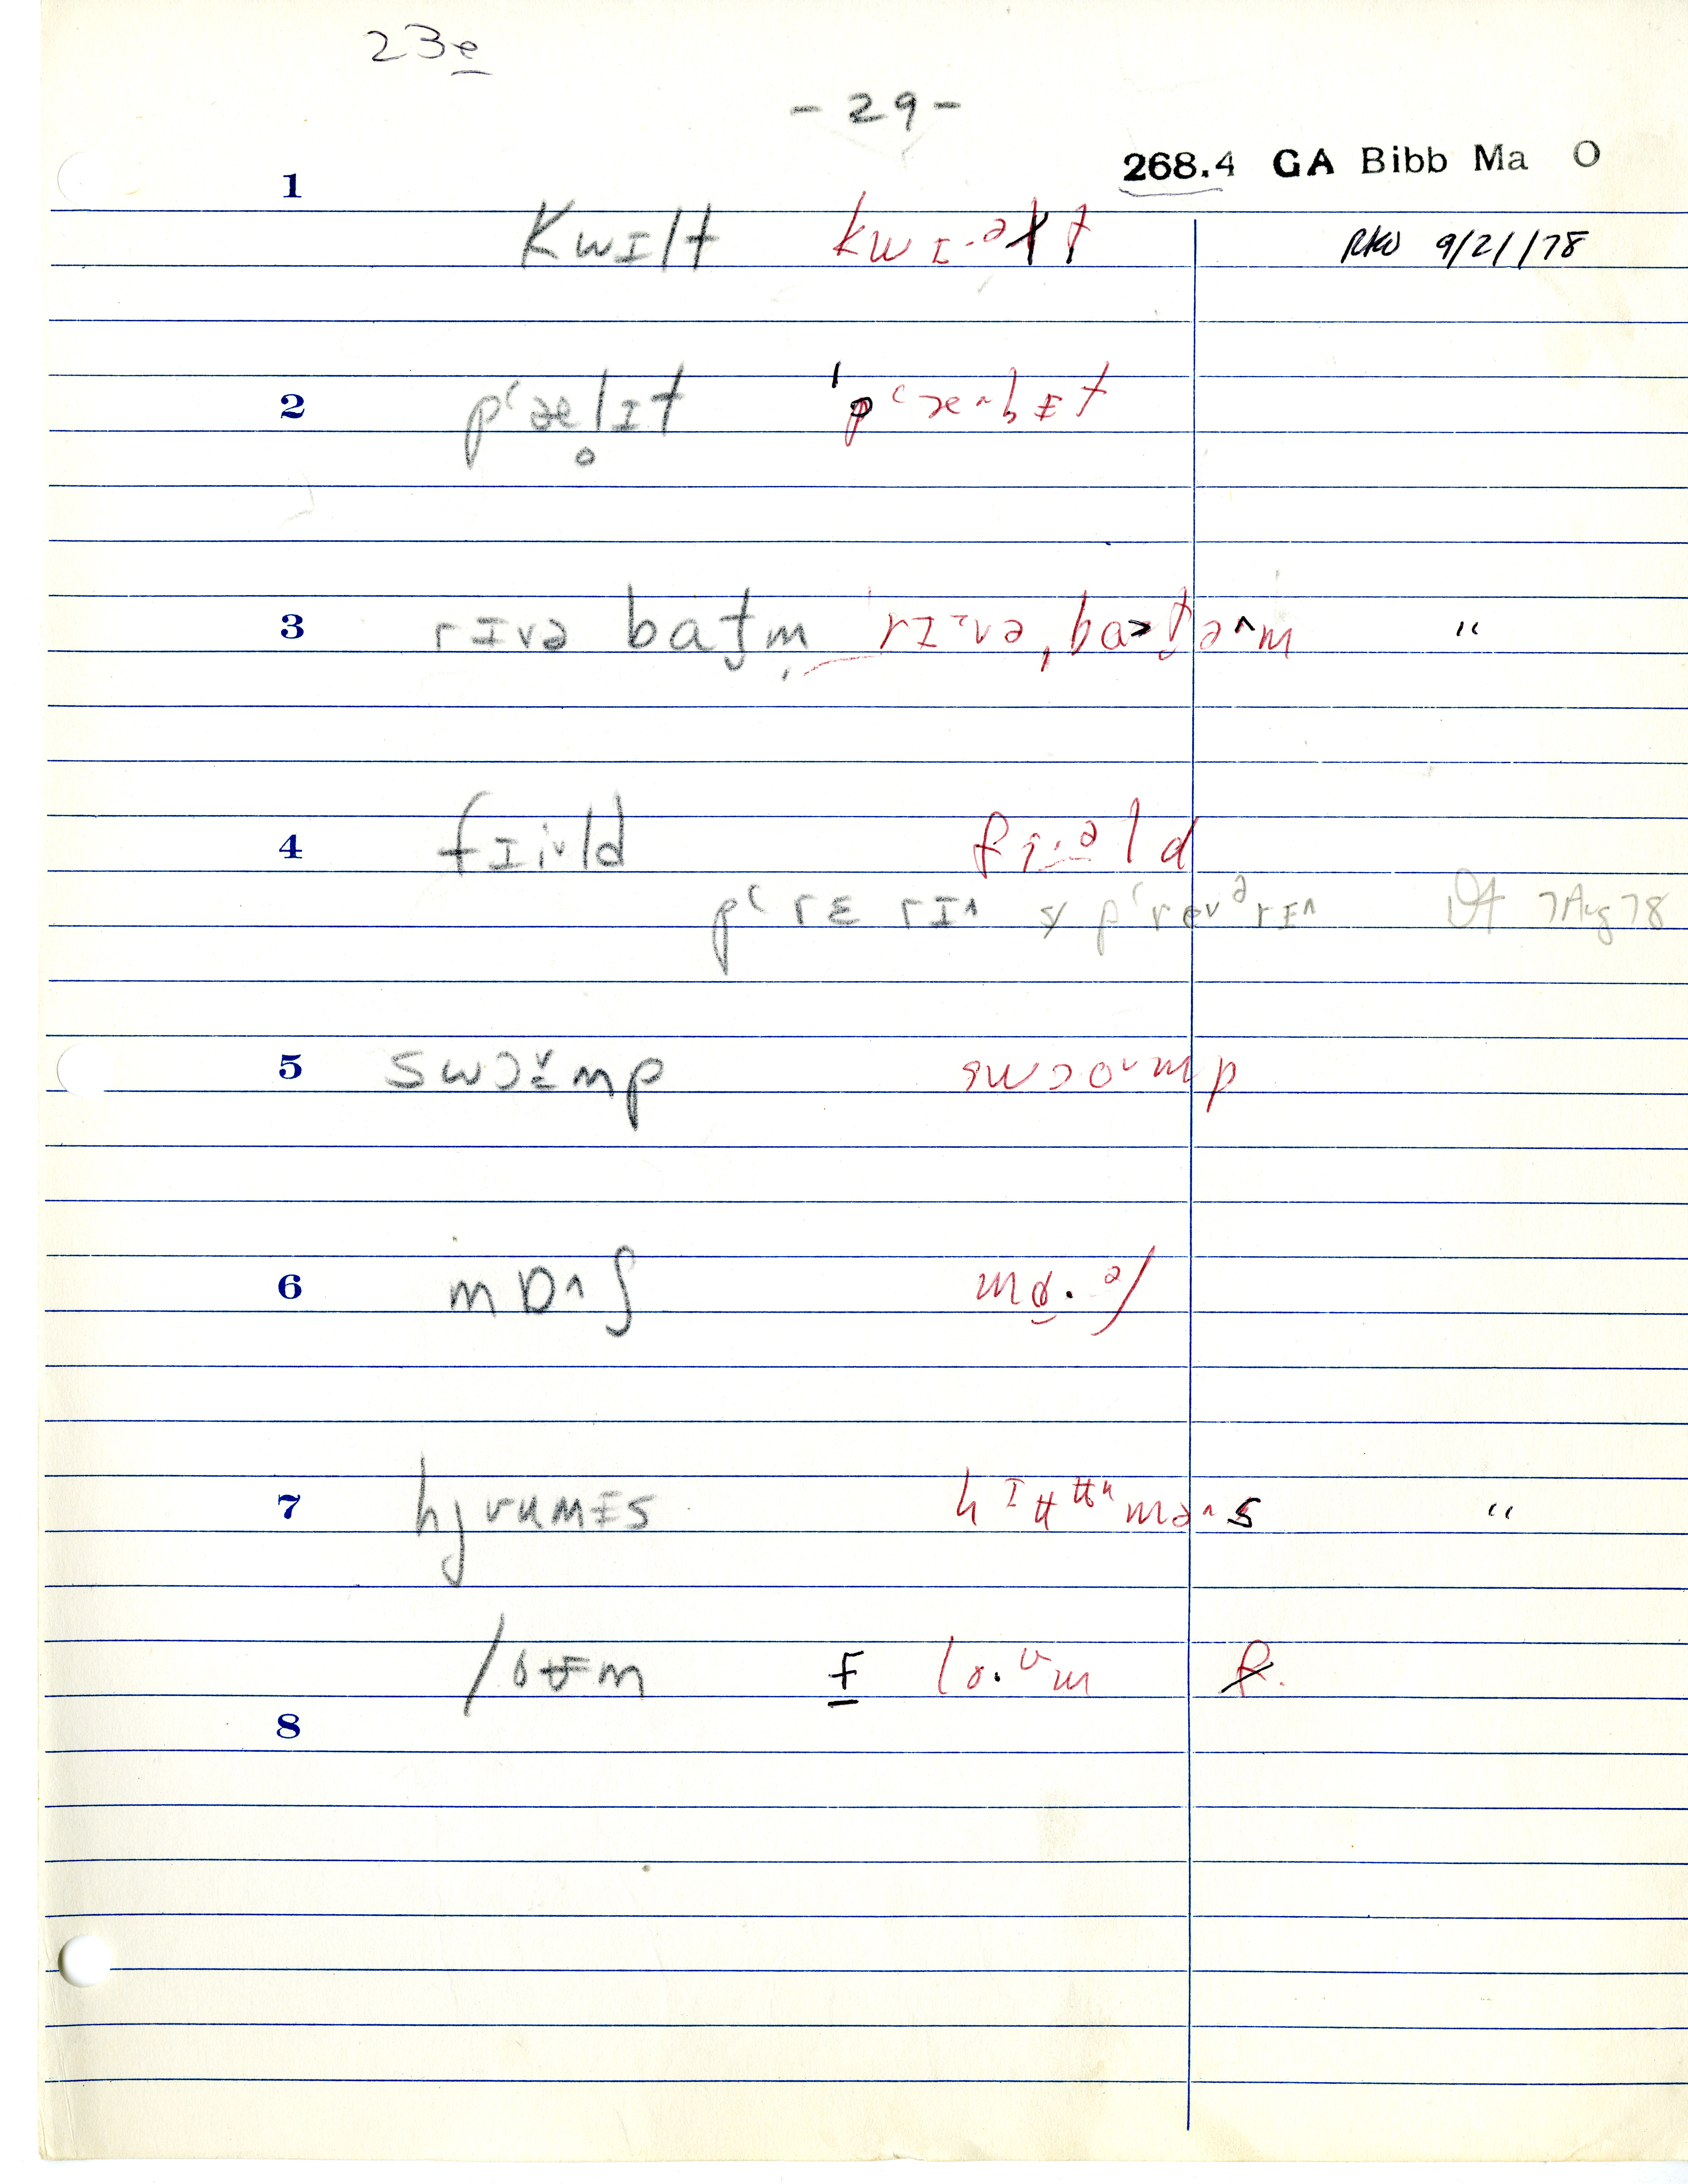 23e
- 29 -
268.4 GA Bibb Ma O
1
kwɪlt kwɪ·ᵊɫt RKW 9/21/78
2
pʻælɪ̥t ˈpʻæ˄lɪt
3
rɪvə batm̩ ˈrɪ˄və ˌba>tə˄m "
4
fɪi˅ld fi·ᵊld
pʻrɛrɪ˄ sy pʻre˅ᵊrɪ˄ 7 Aug 78
5
swɔɔ˅mp swɔo˅mp
6
mɒ˄ʃ mɑ·ᵊʃ
7
hjʊʉmɪs hᶦʉᵘmə˄s "
loʊm f lo·ᶷm f.
8